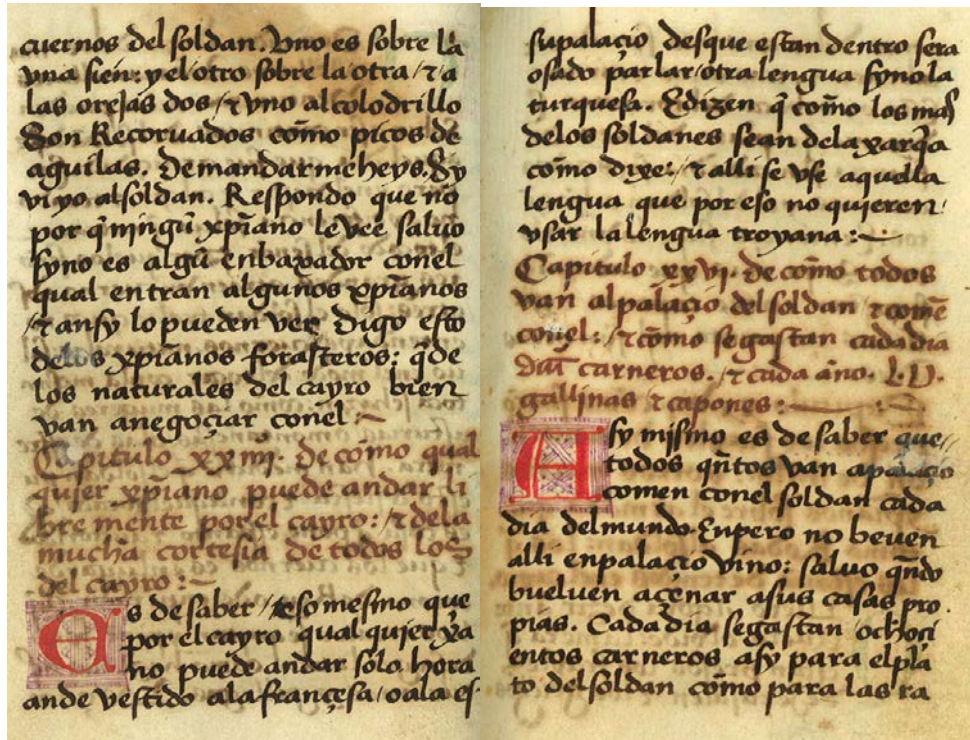 cuernos del soldan. Vno es sobre la
vna sien: y el otro sobre la otra / ⁊ a
las orejas dos / ⁊ vno al colodrillo
Son Recoruados cõmo picos de
aguilas. Demandarmeheys. Sy
vi yo al soldan. Respondo que no
por q̃ ningũ xp̃iano le vee saluo
syno es algũ enbaxador conel
qual entran algunos xp̃ianos
/ ⁊ ansy lo pueden ver. Digo esto
delos xp̃ianos forasteros: q̃ de
los naturales del cayro bien
van anegoçiar conel :~
Capitulo xxiiij. de cõmo qual
quier xp̃iano puede andar li
bre mente por el cayro: / ⁊ dela
mucha cortesia de todos los
del cayro :~
Es de saber / ⁊ eso mesmo que
por el cayro qual quier xp̃a
no puede andar solo. hora
ande vestido ala françesa / o ala es
su palaçio desque estan dentro sera
osado parlar / otra lengua syno la
turquesa. E dizen q̃ cõmo los mas
delos soldanes sean dela xarq̃a
cõmo dixe: / ⁊ alli se vse aquella
lengua que por eso no quieren /
vsar la lengua troyana :~
Capitulo xxvi. de cõmo todos
van al palaçio del soldan / ⁊ comẽ
conel: / ⁊ cõmo se gastan cada dia
carneros. / ⁊ cada año. L.V.
gallinas ⁊ capones :~
Asy mismo es de saber que /
todos qñtos van a palaçio
comen conel soldan cada
dia del mundo. Enpero no beuen
alli enpalaçio vino: saluo qñdo
bueluen açenar asus casas pro
pias. Cada dia se gastan ochoçi
entos carneros asy para el pla
to del soldan cõmo para las ra